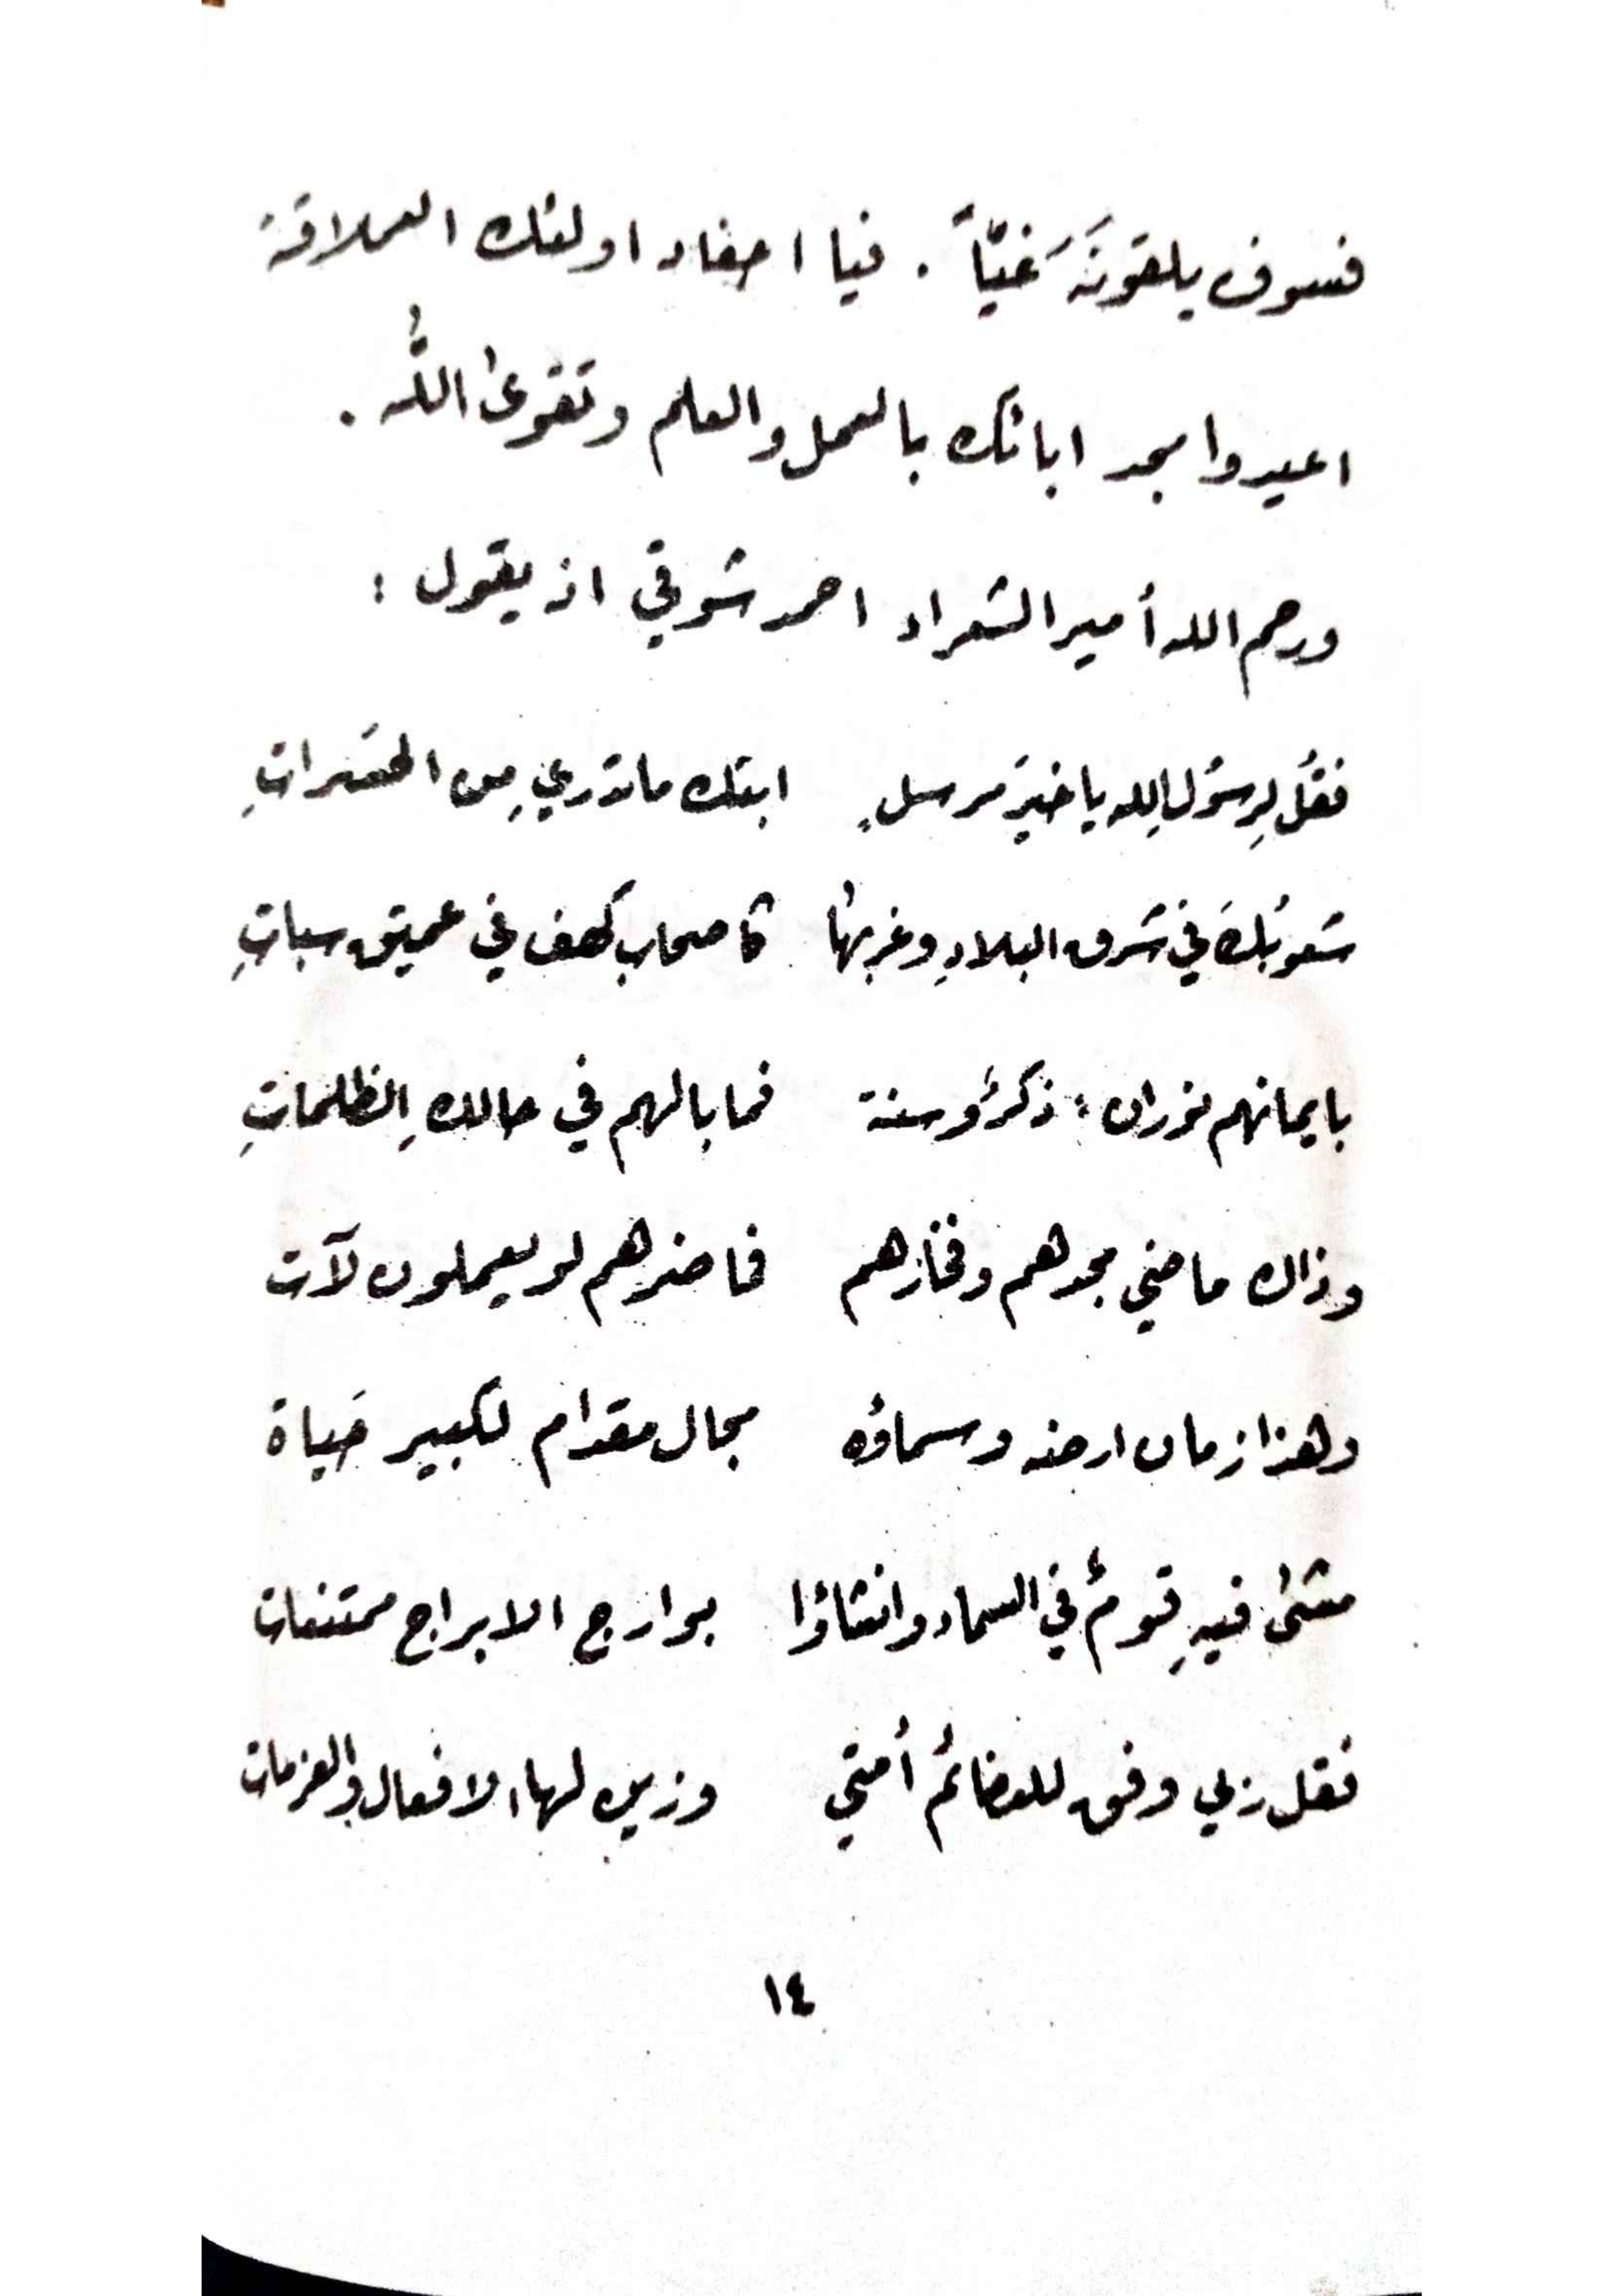 فسوف يلقونَ غيّاً . فيا احفاد اولئك العملاقة
اعيدوا مجد ابائك بالعمل والعلم وتقوى اللّٰه .
ورحم الله أمير الشعراء احمد شوقي اذ يقول :
فقل لِرسول الله يا خيرَ مرسلٍ ابثك ما تدري مِن الحسَراتِ
شعوبُكَ في شرق البلادِ وغربها كأصحاب كهف في عميق سباتِ
بايمانهم نوران ؛ ذكرٌ وسنة فما بالهم في حالكِ الظلماتِ
وذاك ماضي مجدهم وفخارهم فما ضرهم لو يعملون لآت
وهذا زمان ارضه وسماؤه مجال مقدام لكبير حَياة
مشى فيهِ قومٌ في السماء وانشاؤا بوارج الابراج ممتنعات
فقل ربي وفق للعضائم أمتي وزين لها الافعال والعزمات
١٤